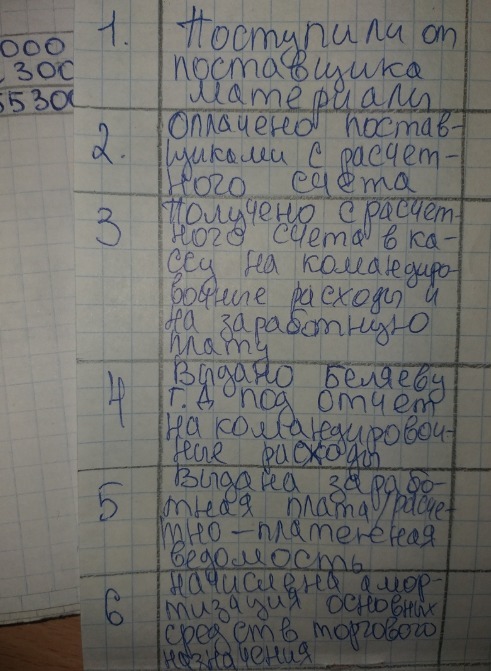 000
300
55300
1. Поступили от
поставщика
материалы
2. Оплачено постав-
щиками с расчет-
ного счета
3 Получено с расчет-
ного счета в ка-
ссу на командиро-
вочные расходы и
на заработную
плату
4 Выдано Беляеву
Г.А под отчет
на командировоч-
ные расходы
5 Выдана зарабо-
тная плата/расче-
тно-платежная
ведомость
6 начислена амор-
тизация основных
средств торгового
назначения